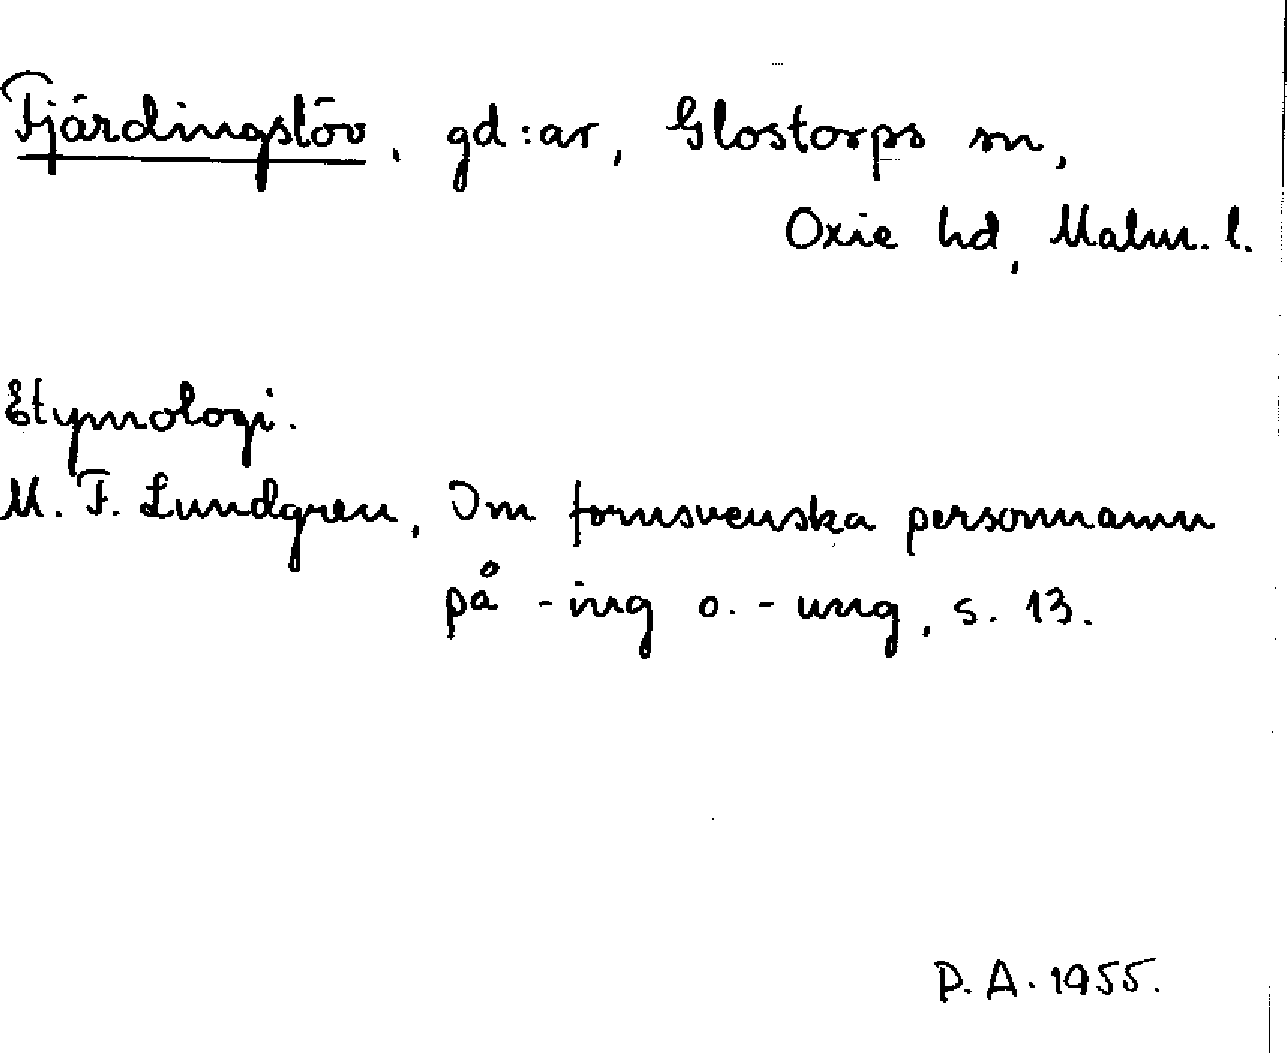 Fjärdingslöv, gd:ar, Glostorps sn,
Oxie hd, Malm. l.
Etymologi.
M. F. Lundgren, Om fornsvenska personnamn
på -ing o. -ung, s. 13.
P. A. 1955.